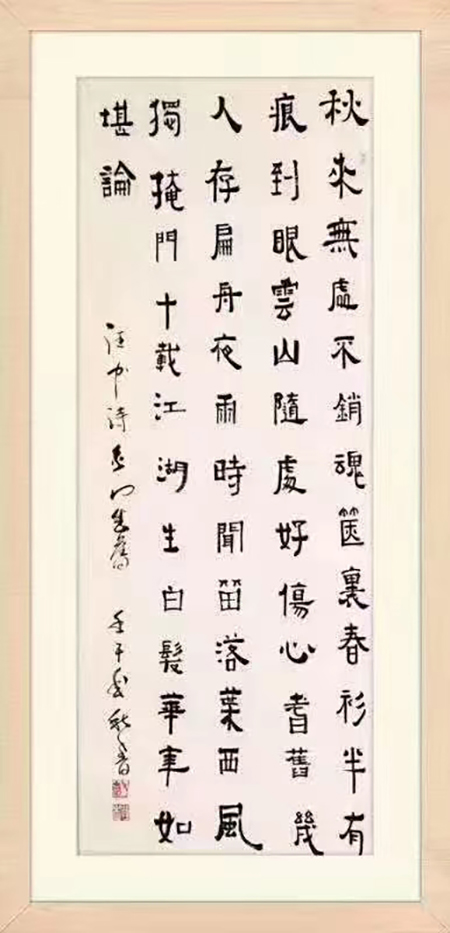 秋來無處不銷魂篋裏春衫半有
痕到眼雲山隨處好傷心耆舊幾
人存扁舟夜雨時聞笛落葉西風
獨掩門十載江湖生白髮華年如
堪論
汪中詩白门感舊 壬午